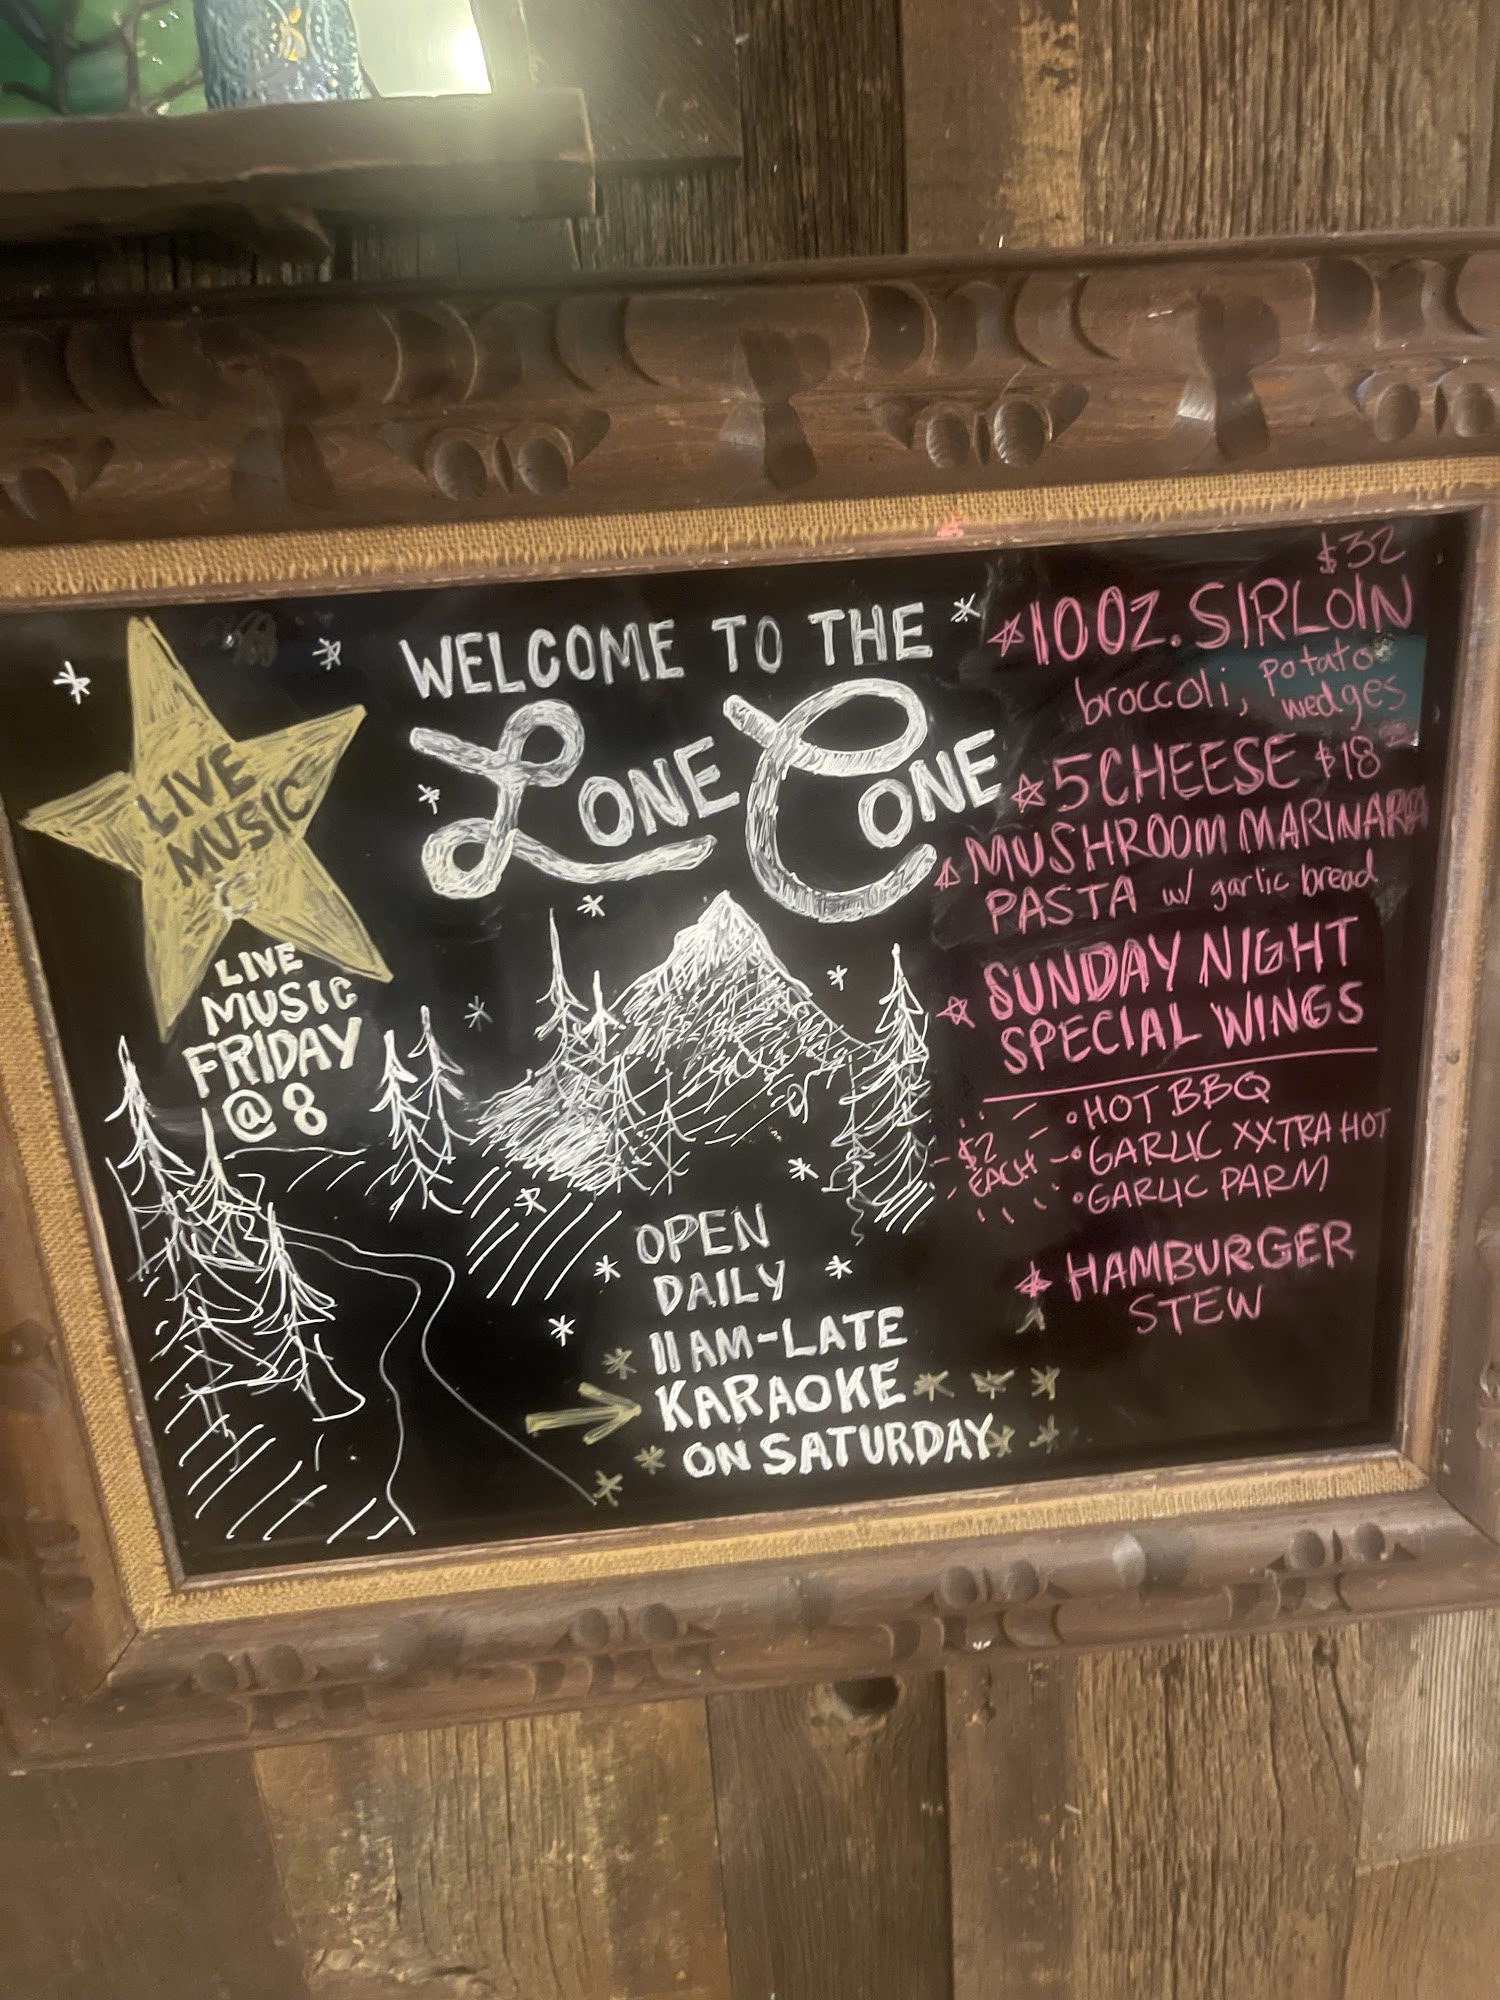 LIVE
MUSIC
LIVE
MUSIC
FRIDAY
@ 8
WELCOME TO THE
LONE CONE
OPEN
DAILY
11AM-LATE
KARAOKE
ON SATURDAY
$32
10OZ. SIRLOIN
broccoli, potato
wedges
5 CHEESE $18
MUSHROOM MARINARA
PASTA w/ garlic bread
SUNDAY NIGHT
SPECIAL WINGS
$2
EACH
• HOT BBQ
• GARLIC XXTRA HOT
• GARLIC PARM
HAMBURGER
STEW